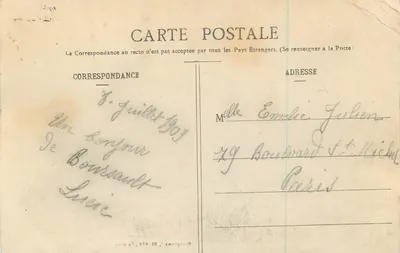 CARTE POSTALE
La Correspondance au recto n'est pas acceptée par tous les Pays Étrangers. (Se renseigner à la Poste)
CORRESPONDANCE
ADRESSE
8 Juillet 1909
Un bonjour
de Boursault
Lucie
Melle Emilie Julien
79 Boulevard St Michel
Paris